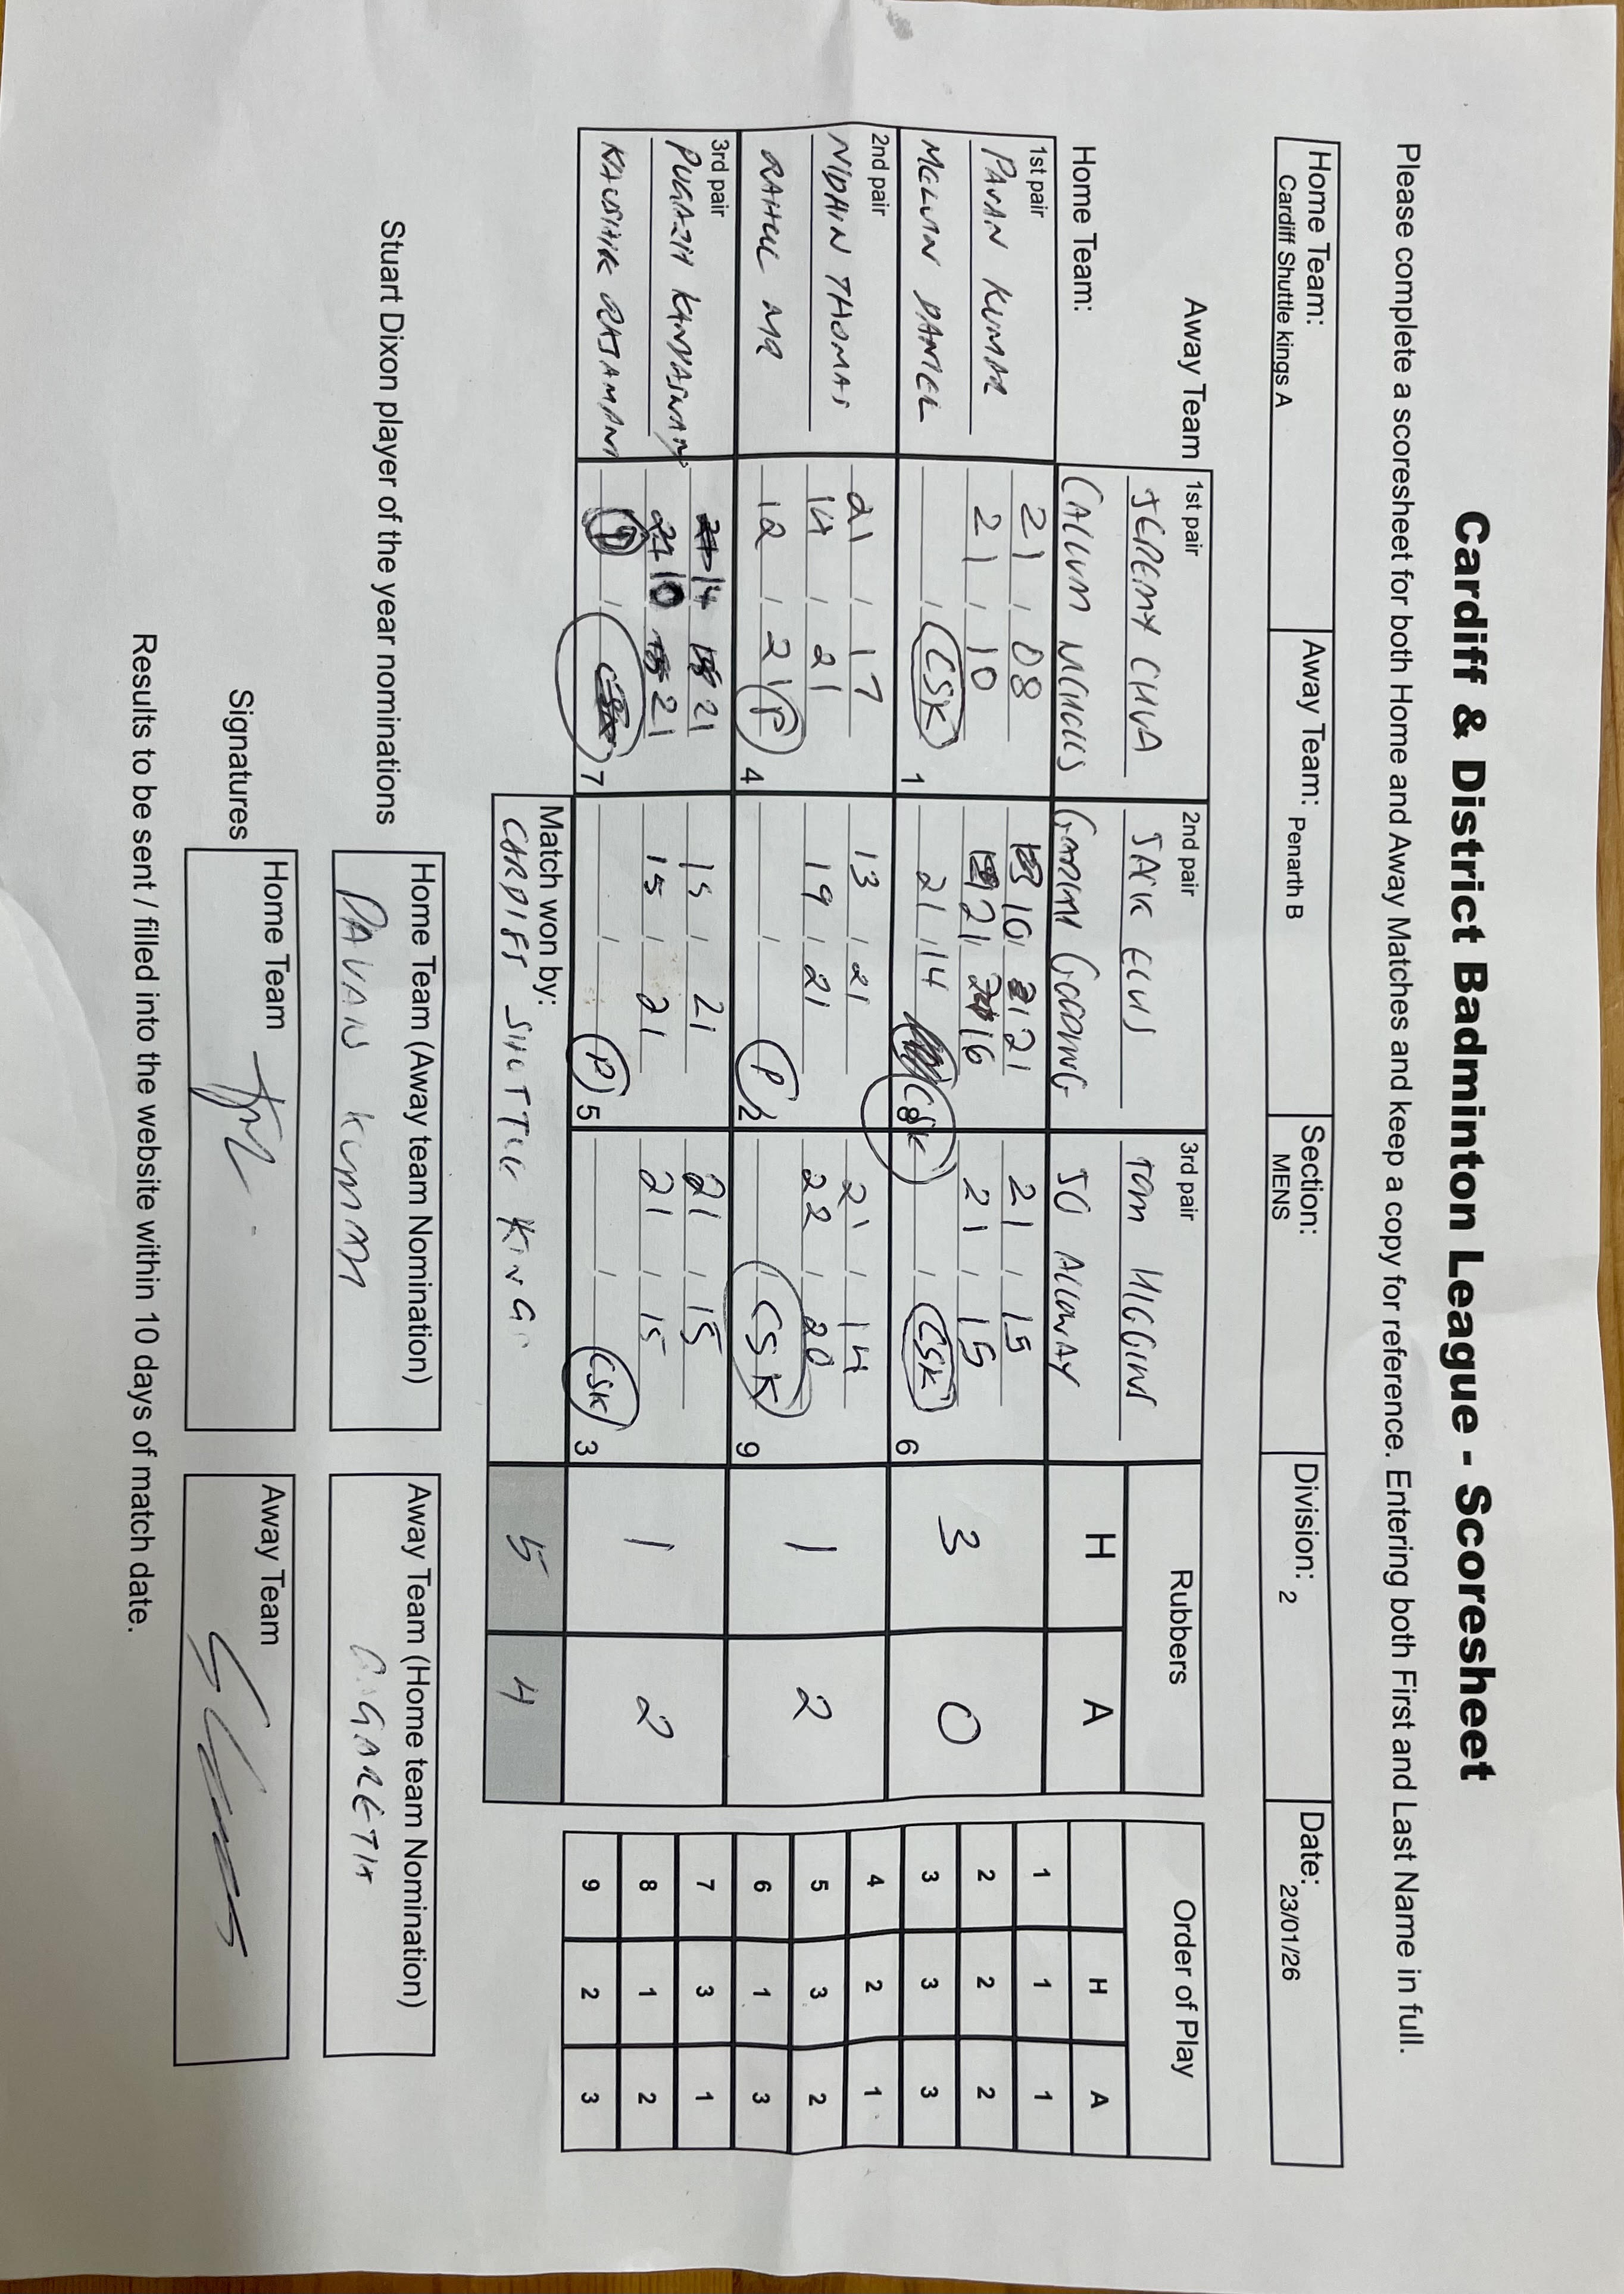 Cardiff & District Badminton League - Scoresheet
Please complete a scoresheet for both Home and Away Matches and keep a copy for reference. Entering both First and Last Name in full.
Home Team: Cardiff Shuttle kings A
Away Team: Penarth B
Section: MENS
Division: 2
Date: 23/01/26
Away Team
1st pair
JEREMY CHUA
CALLUM
2nd pair
JACK
3rd pair
TOM HIGGINS
JO ALLOWAY
Rubbers
H A
Home Team:
1st pair
PAVAN KUMAR
MELVIN DANIEL
21 , 08
21 , 10
, CSK
1
10 , 21
21 , 16
21 , 14 CSK
8
21 , 15
21 , 15
, CSK
6
3 0
2nd pair
NIDHIN THOMAS
RAHUL MR
21 , 17
14 , 21
12 , 21 P
4
13 , 21
19 , 21
, P
2
21 , 14
22 , 20
, CSK
9
1 2
3rd pair
PUGAZH
KAUSHIK
14 21
10 21
,
7
15 , 21
15 , 21
, P
5
21 , 15
21 , 15
, CSK
3
1 2
Match won by:
CARDIFF SHUTTLE KINGS
5 4
Order of Play
H A
1 1 1
2 2 2
3 3 3
4 2 1
5 3 2
6 1 3
7 3 1
8 1 2
9 2 3
Stuart Dixon player of the year nominations
Home Team (Away team Nomination)
PAVAN KUMAR
Away Team (Home team Nomination)
GARETH
Signatures
Home Team
Away Team
Results to be sent / filled into the website within 10 days of match date.